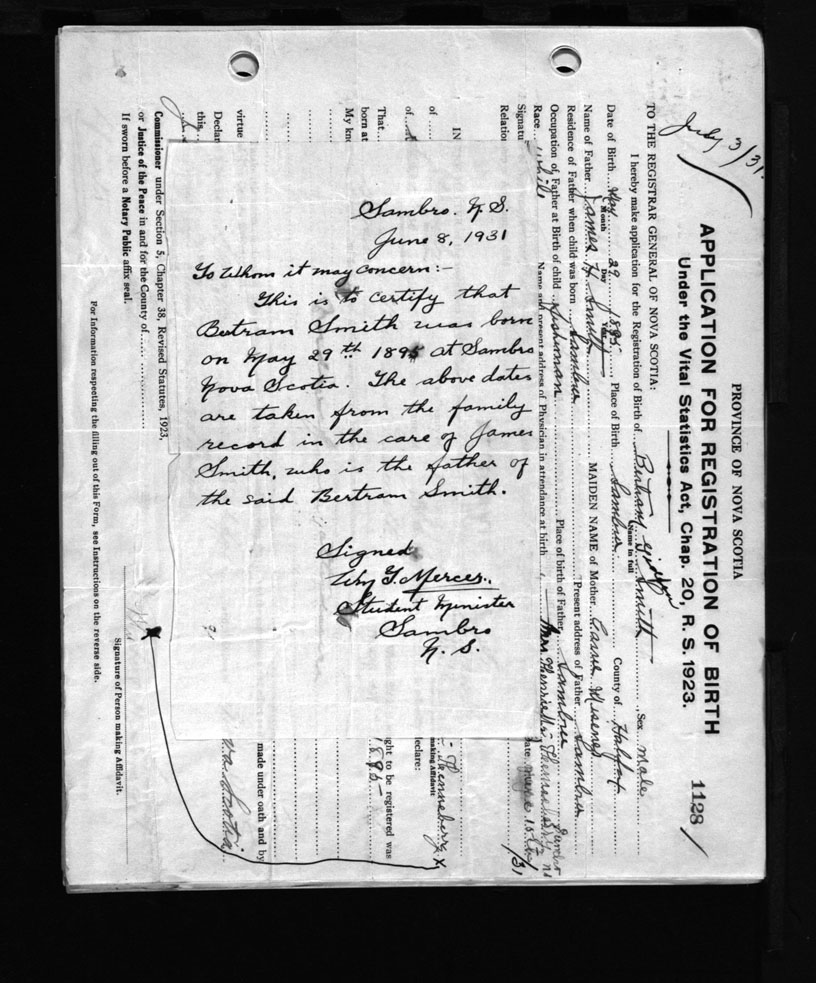 July 3/31.
PROVINCE OF NOVA SCOTIA
APPLICATION FOR REGISTRATION OF BIRTH
Under the Vital Statistics Act, Chap. 20, R. S. 1923.
1128
TO THE REGISTRAR GENERAL OF NOVA SCOTIA:
I hereby make application for the Registration of Birth of Bertram Smith Sex male
Name in full
Date of Birth May 29 1895 Place of Birth Sambro County of Halifax
Month Day Year
Name of Father James H. Smith MAIDEN NAME of Mother
Residence of Father when child was born Sambro Present address of Father Sambro
Occupation of Father at Birth of child Fisherman Place of birth of Father Sambro
Race White Name and present address of Physician in attendance at birth Mrs Henrietta
Signatu
Relatio
IN
of
of
That
born at
My kn
virtue
Declar
this
making Affidavit
declare:
ght to be registered was
1895
made under oath and by
Commissioner under Section 5, Chapter 38, Revised Statutes, 1923,
or Justice of the Peace in and for the County of
If sworn before a Notary Public affix seal.
Signature of Person making Affidavit.
For Information respecting the filling out of this Form, see Instructions on the reverse side.
Sambro. N. S.
June 8, 1931
To Whom it may concern:-
This is to certify that
Bertram Smith was born
on May 29th 1895 at Sambro
Nova Scotia. The above dates
are taken from the family
record in the care of James
Smith, who is the father of
the said Bertram Smith.
Signed
Wm T. Mercer.
Student Minister
Sambro
N. S.